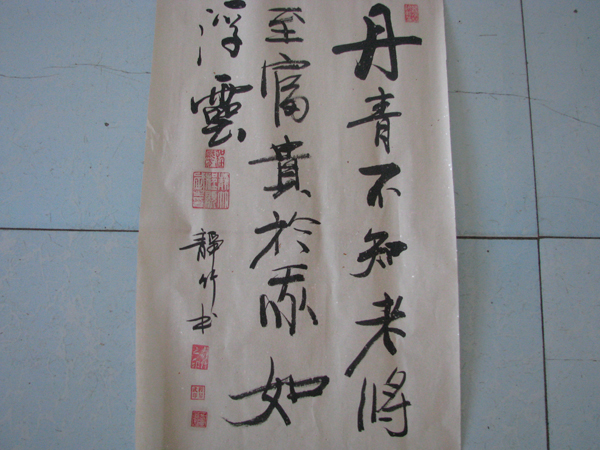 丹青不知老將
至富貴於我如
浮雲
靜竹书